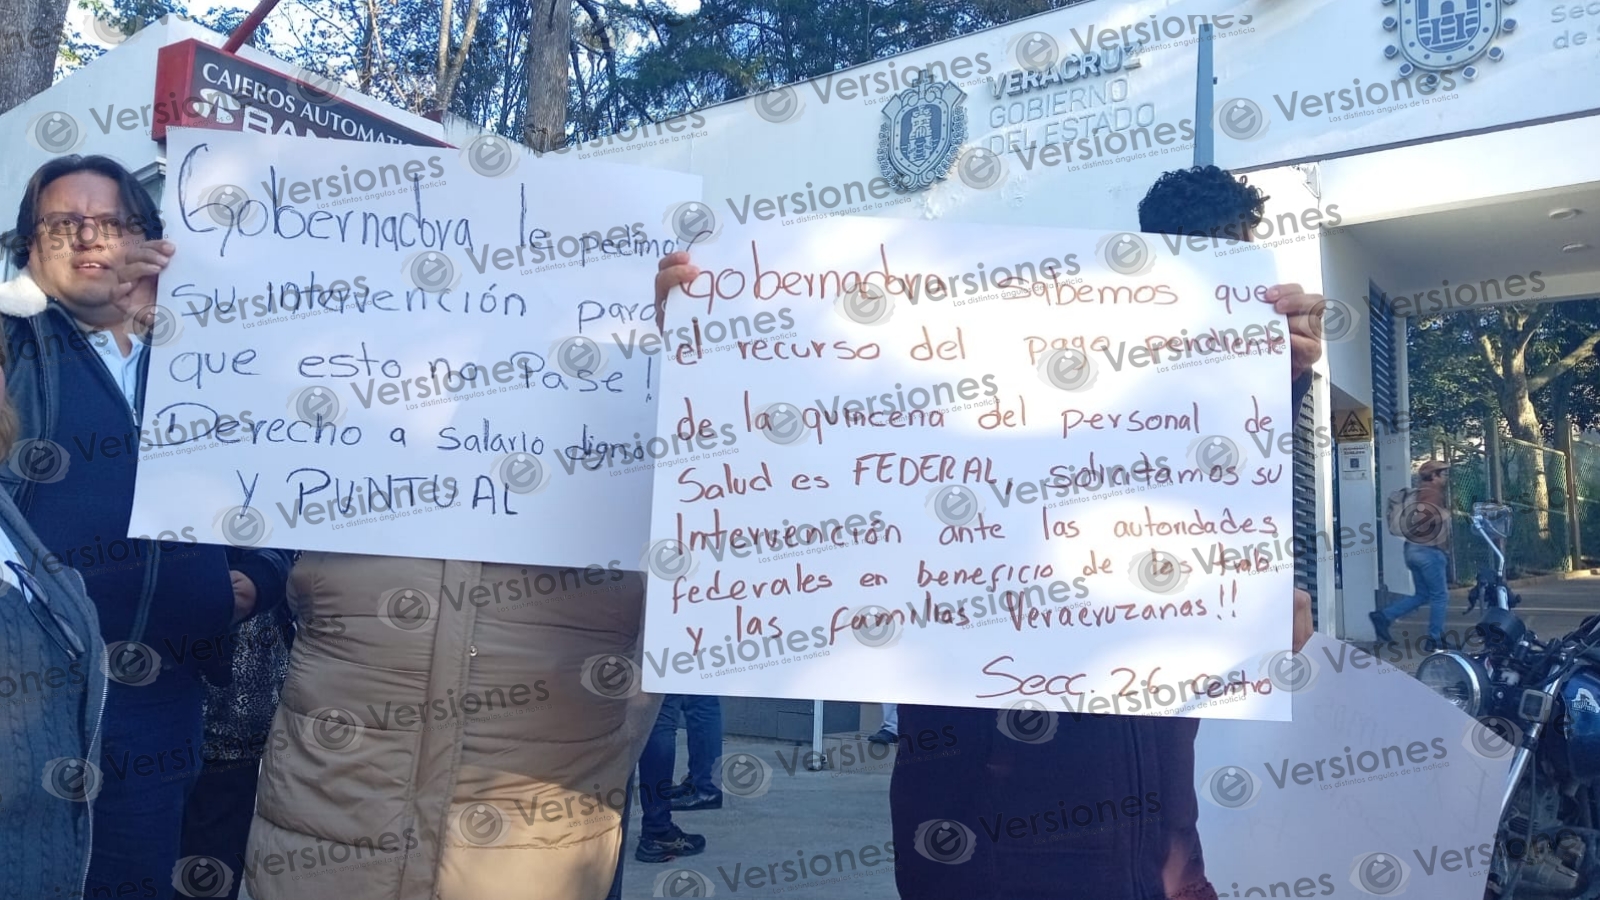 CAJEROS AUTOMATI
VERACRUZ
GOBIERNO
DEL ESTADO
Sec
de
Gobernadora le pedimos
su intervención para
que esto no Pase!
Derecho a salario digno
y PUNTUAL
Gobernadora sabemos que
el recurso del pago pendiente
de la quincena del personal de
Salud es FEDERAL, solicitamos su
Intervención ante las autoridades
federales en beneficio de los trab.
y las familias Veracruzanas!!
Secc. 26 centro
Versiones
Los distintos ángulos de la noticia